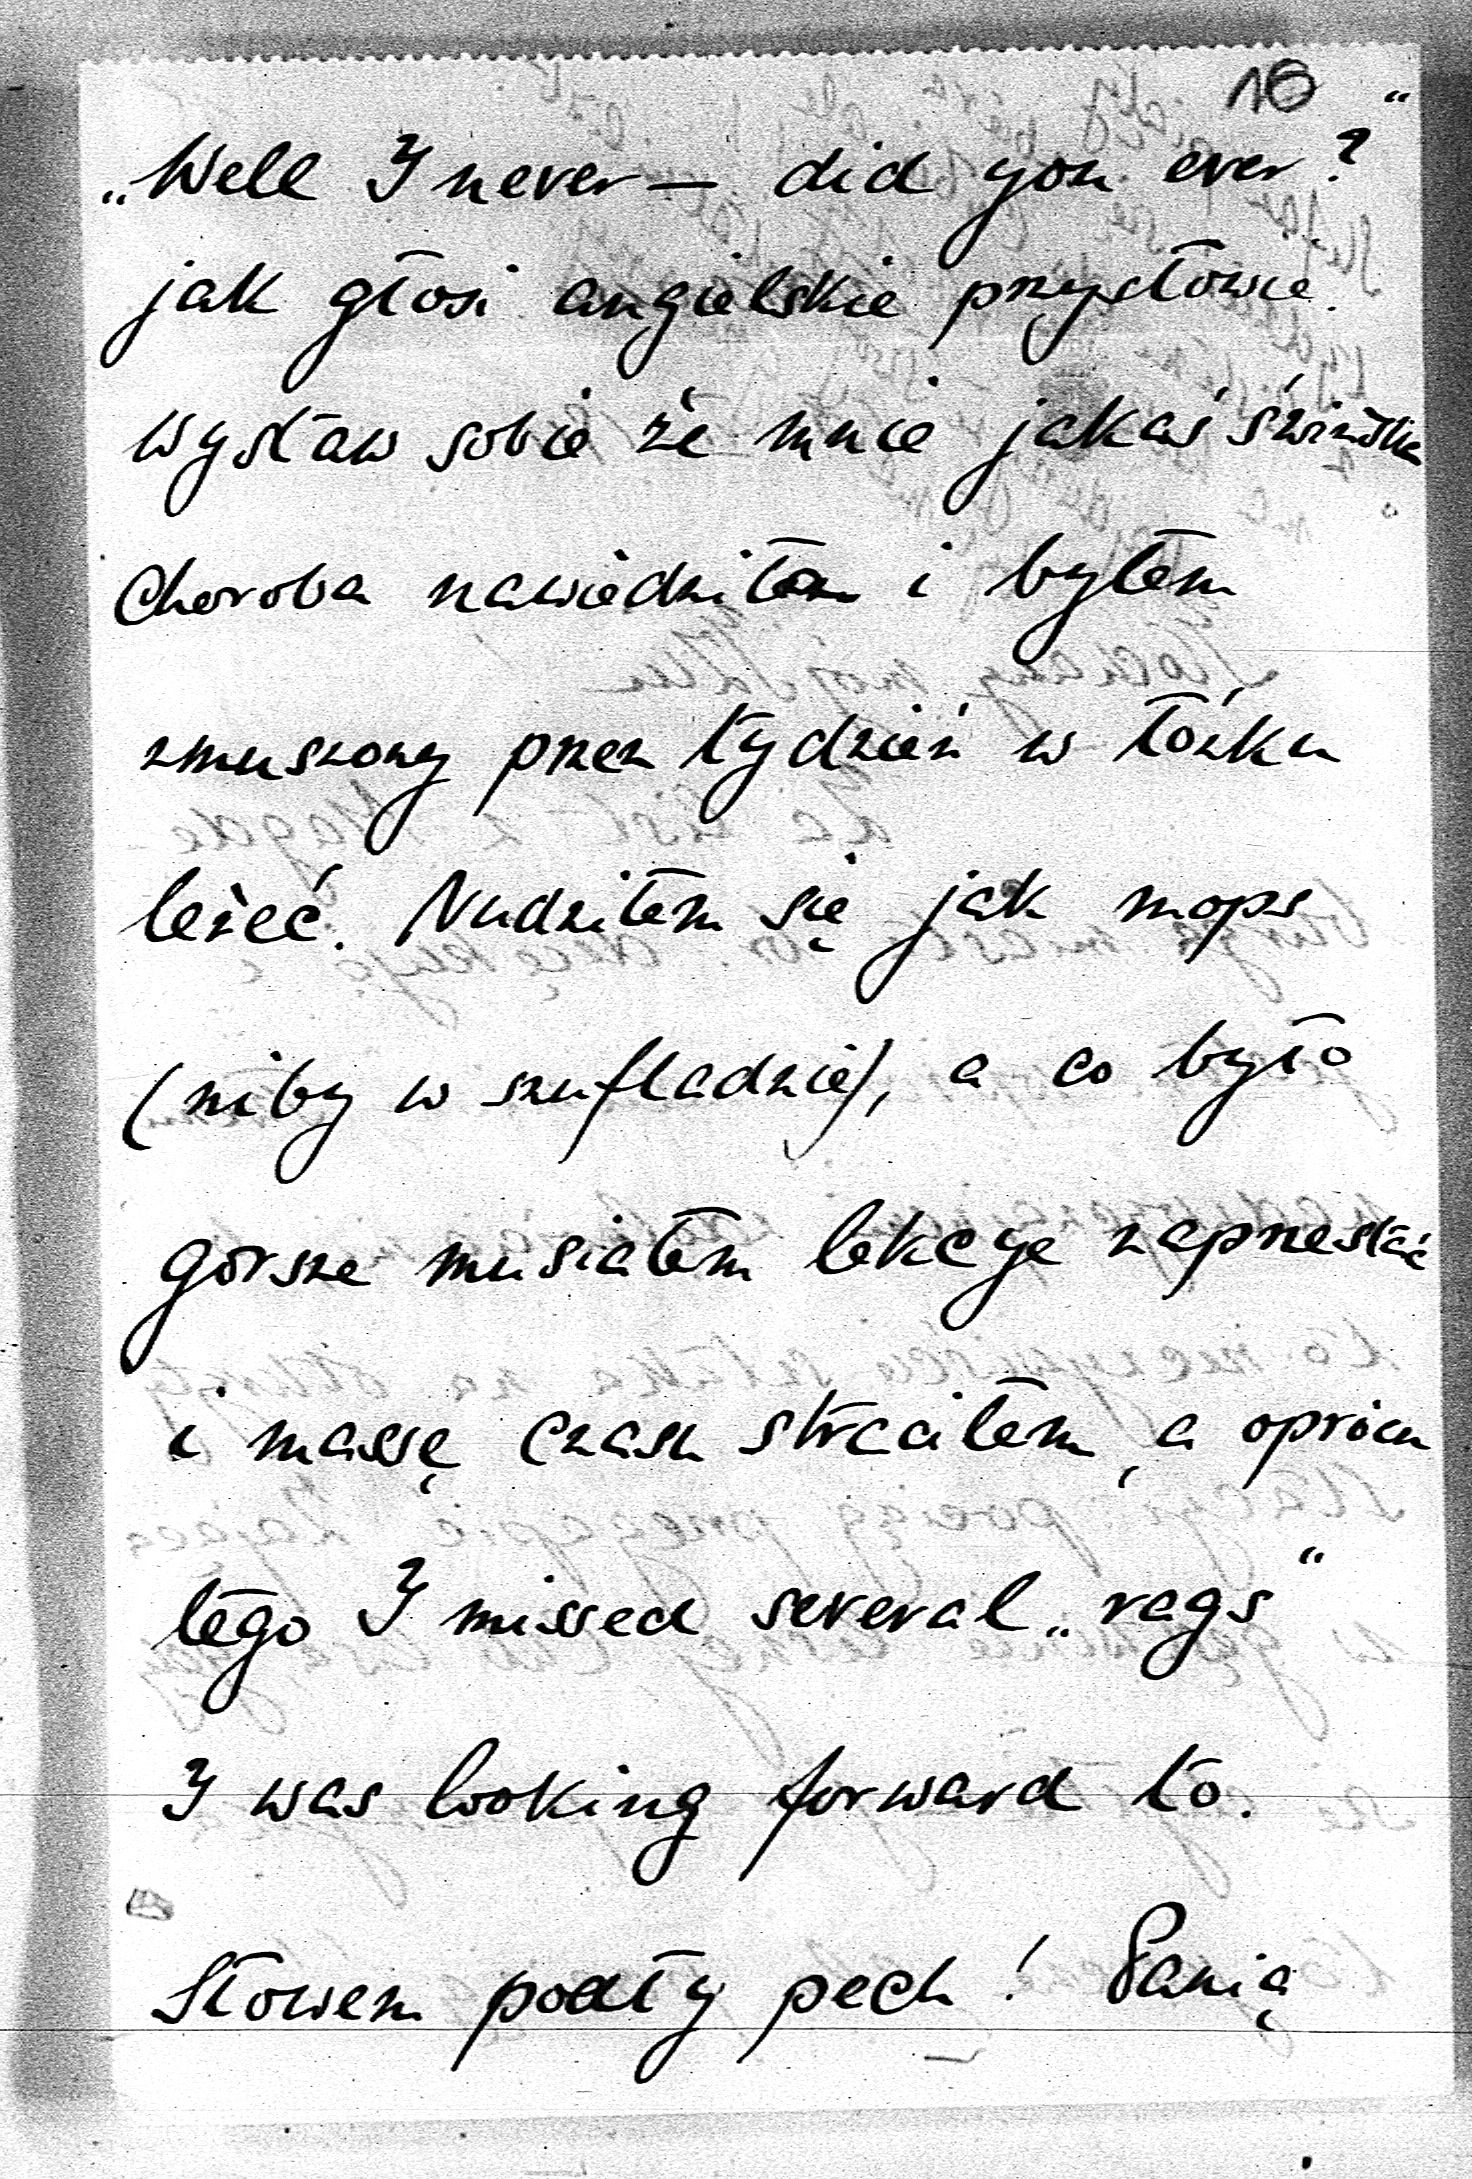 16
„Well I never — did you ever?“
jak głosi angielskie przysłowie.
wystaw sobie że mnie jakaś świńska
choroba nawiedziła i byłem
zmuszony przez tydzień w łóżku
leżeć. Nudziłem się jak mops
(niby w szufladzie), a co było
gorsze musiałem lekcye zaprzestać
i massę czasu straciłem, a oprócz
tego I missed several „rags“
I was looking forward to.
Słowem podły pech! Panią